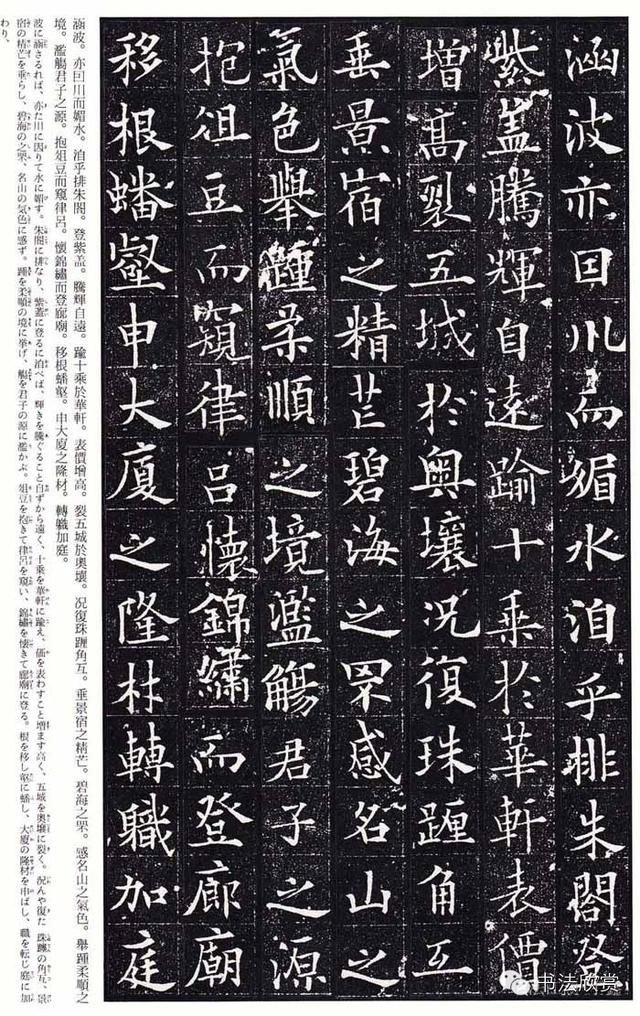 涵波亦因川而媚水洎乎排朱閣登
紫盖騰輝自遠踰十乗於華軒表價
増髙裂五城於奥壤况復珠躔角互
垂景宿之精芒碧海之罘感名山之
氣色舉踵柔順之境濫觴君子之源
抱俎豆而窺律吕懷錦繡而登廊廟
移根蟠壑申大厦之隆材轉職加庭
涵波。亦因川而媚水。洎乎排朱閣。登紫盖。騰輝自遠。踰十乗於華軒。表價増高。裂五城於奥壤。况復珠躔角互。垂景宿之精芒。碧海之罘。感名山之氣色。舉踵柔順之
境。濫觴君子之源。抱俎豆而窺律呂。懷錦繡而登廊廟。移根蟠壑。申大廈之隆材。轉職加庭。
波に涵さるれば、亦た川に因りて水に媚す。朱閣に排なり、紫蓋に登るに洎べば、輝きを騰ぐること自ずから遠く、十乗を華軒に踰え、価を表わすこと増ます高く、五城を奥壤に裂く。況んや復た珠躔の角互、景
宿の精芒を垂らし、碧海の之罘、名山の気色に感ず。踵を柔順の境に挙げ、觴を君子の源に濫かぶ。俎豆を抱きて律呂を窺い、錦繡を懐きて廊廟に登る。根を移し壑に蟠し、大廈の隆材を申ばし、職を転じ庭に加
わり、
书法欣赏